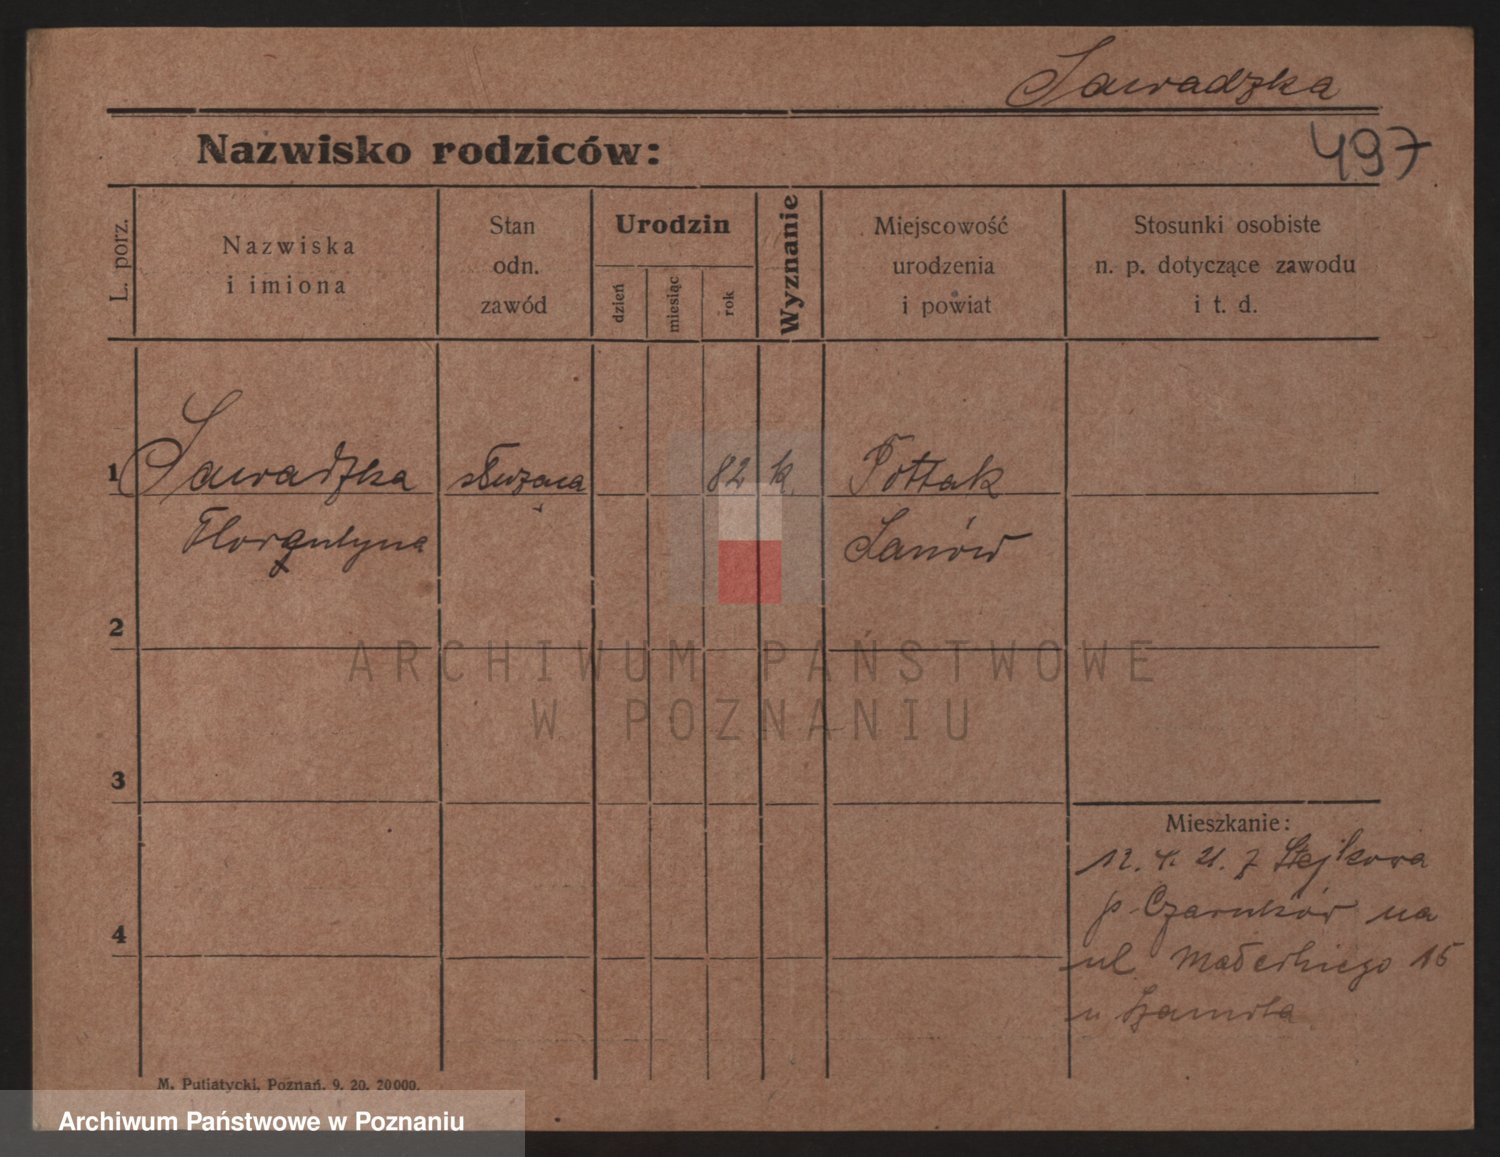 Zawadzka
497
Nazwisko rodziców:
L. porz.
Nazwiska
i imiona
Stan
odn.
zawód
Urodzin
dzień
miesiąc
rok
Wyznanie
Miejscowość
urodzenia
i powiat
Stosunki osobiste
n. p. dotyczące zawodu
i t. d.
1 Zawadzka służąca 82 k
Janów
2
3
4
Mieszkanie:
12. 4. 21. z
p. Czarnków na
ul Małeckiego 15
u
ARCHIWUM PAŃSTWOWE
W POZNANIU
M. Putiatycki, Poznań. 9. 20. 20000.
Archiwum Państwowe w Poznaniu